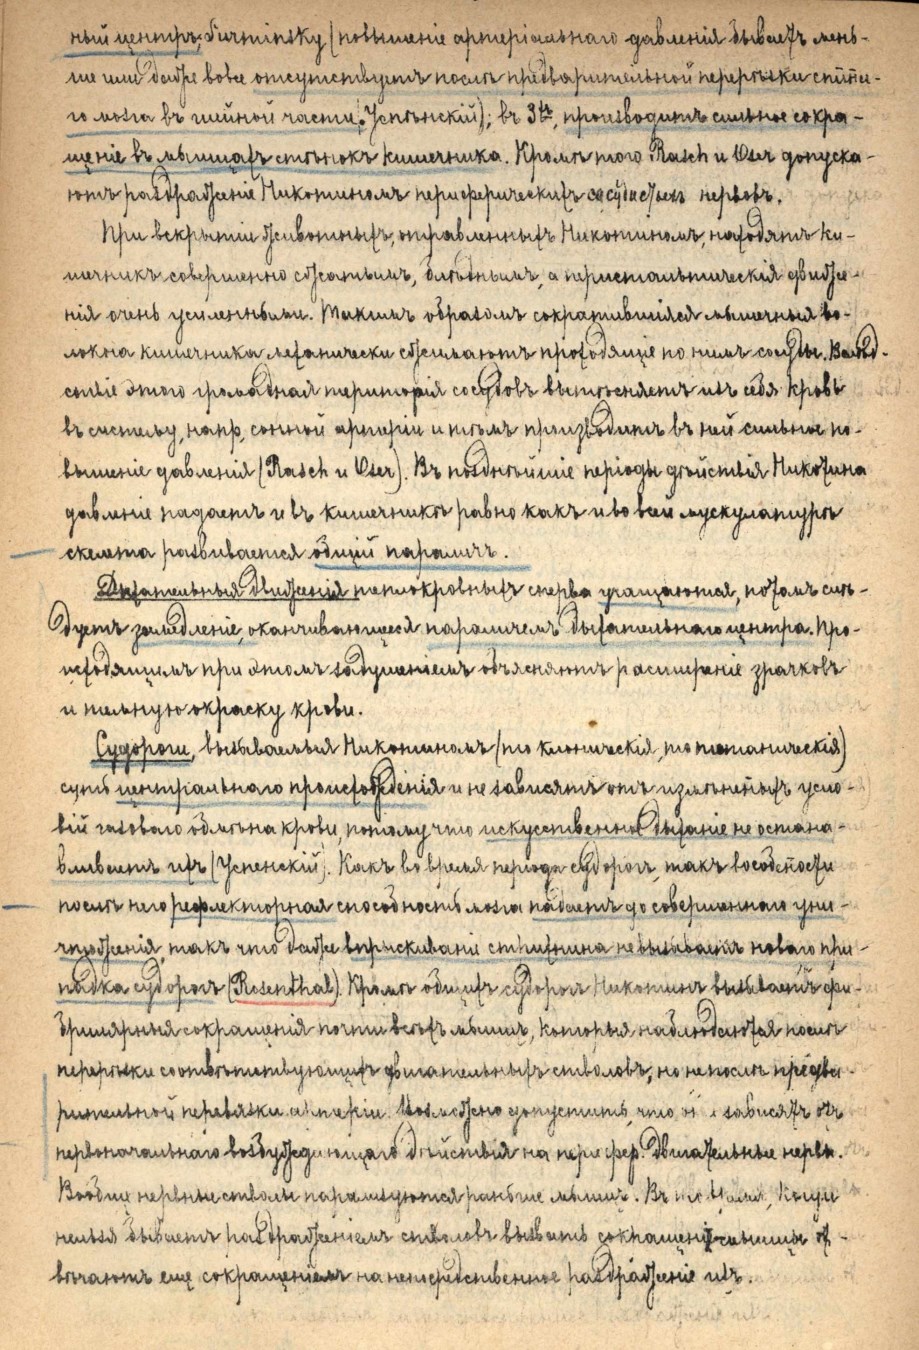 ный центръ; Surminsky (повышеніе артеріальнаго давленія бываетъ мень-
ше или даже вовсе отсутствуетъ послѣ предварительной перерѣзки спин-
го мозга въ шейной части, Успѣнскій); въ 3ьь, производитъ сильное сокра-
щеніе въ мышцахъ стѣнокъ кишечника. Кромѣ того Basch и Oser допуска-
ютъ раздраженіе Никотиномъ периферическихъ сосудистыхъ нервовъ.
При вскрытіи животныхъ, отравленныхъ Никотиномъ, находятъ ки-
шечникъ совершенно сжатымъ, блѣднымъ, а перистальтическія движе-
нія очень усиленными. Такимъ образомъ сократившіяся мышечныя во-
локна кишечника механически сжимаютъ проходящіе по нимъ сосуды. Вслѣд-
ствіе этого громадная територія сосудовъ вытѣсняетъ изъ себя кровь
въ систему, напр, сонной артеріи и тѣмъ производитъ въ ней сильное по-
вышеніе давленія (Basch и Oser). Въ позднѣйшіе періоды дѣйствія Никотина
давленіе падаетъ и въ кишечникѣ равно какъ и во всей мускулатурѣ
скелета развивается общій параличъ.
Дыхательныя движенія теплокровныхъ сперва учащаются, потомъ слѣ-
дуетъ замедленіе, оканчивающееся параличемъ дыхательнаго центра. Про-
исходящимъ при этомъ задушеніемъ объясняютъ расширеніе зрачковъ
и темную окраску крови.
Судороги, вызываемыя Никотиномъ (то клоническія, то тетаническія)
суть центральнаго происхожденія и не зависятъ отъ измѣненныхъ усло-
вій газоваго обмѣна крови, потому что искусственное дыханіе не остана-
вливаетъ ихъ (Успенскій). Какъ во время періода судорогъ, такъ въ особности
послѣ него рефлекторная способность мозга падаетъ до совершеннаго уни-
чтоженія, такъ что даже впрыскиваніе стрихнина не вызываетъ новаго при-
падка судорогъ (Rosenthal). Кромѣ общихъ судорогъ Никотинъ вызываетъ фи-
бриллярныя сокращенія почти всѣхъ мышцъ, которыя наблюдаются послѣ
перерѣзки соотвѣтствующихъ двигательныхъ стволовъ, но не послѣ предва-
рительной перевязки артеріи. Возможно допустить, что они зависятъ отъ
первоначальнаго возбуждающаго дѣйствія на перифер. двигательные нервы.
Вообще нервные стволы парализуются раньше мышцъ. Въ то время, когда
нельзя бываетъ раздраженіемъ стволовъ вызвать сокращеніе мышцы от-
вѣчаютъ еще сокращеніемъ на непосредственное раздраженіе ихъ.